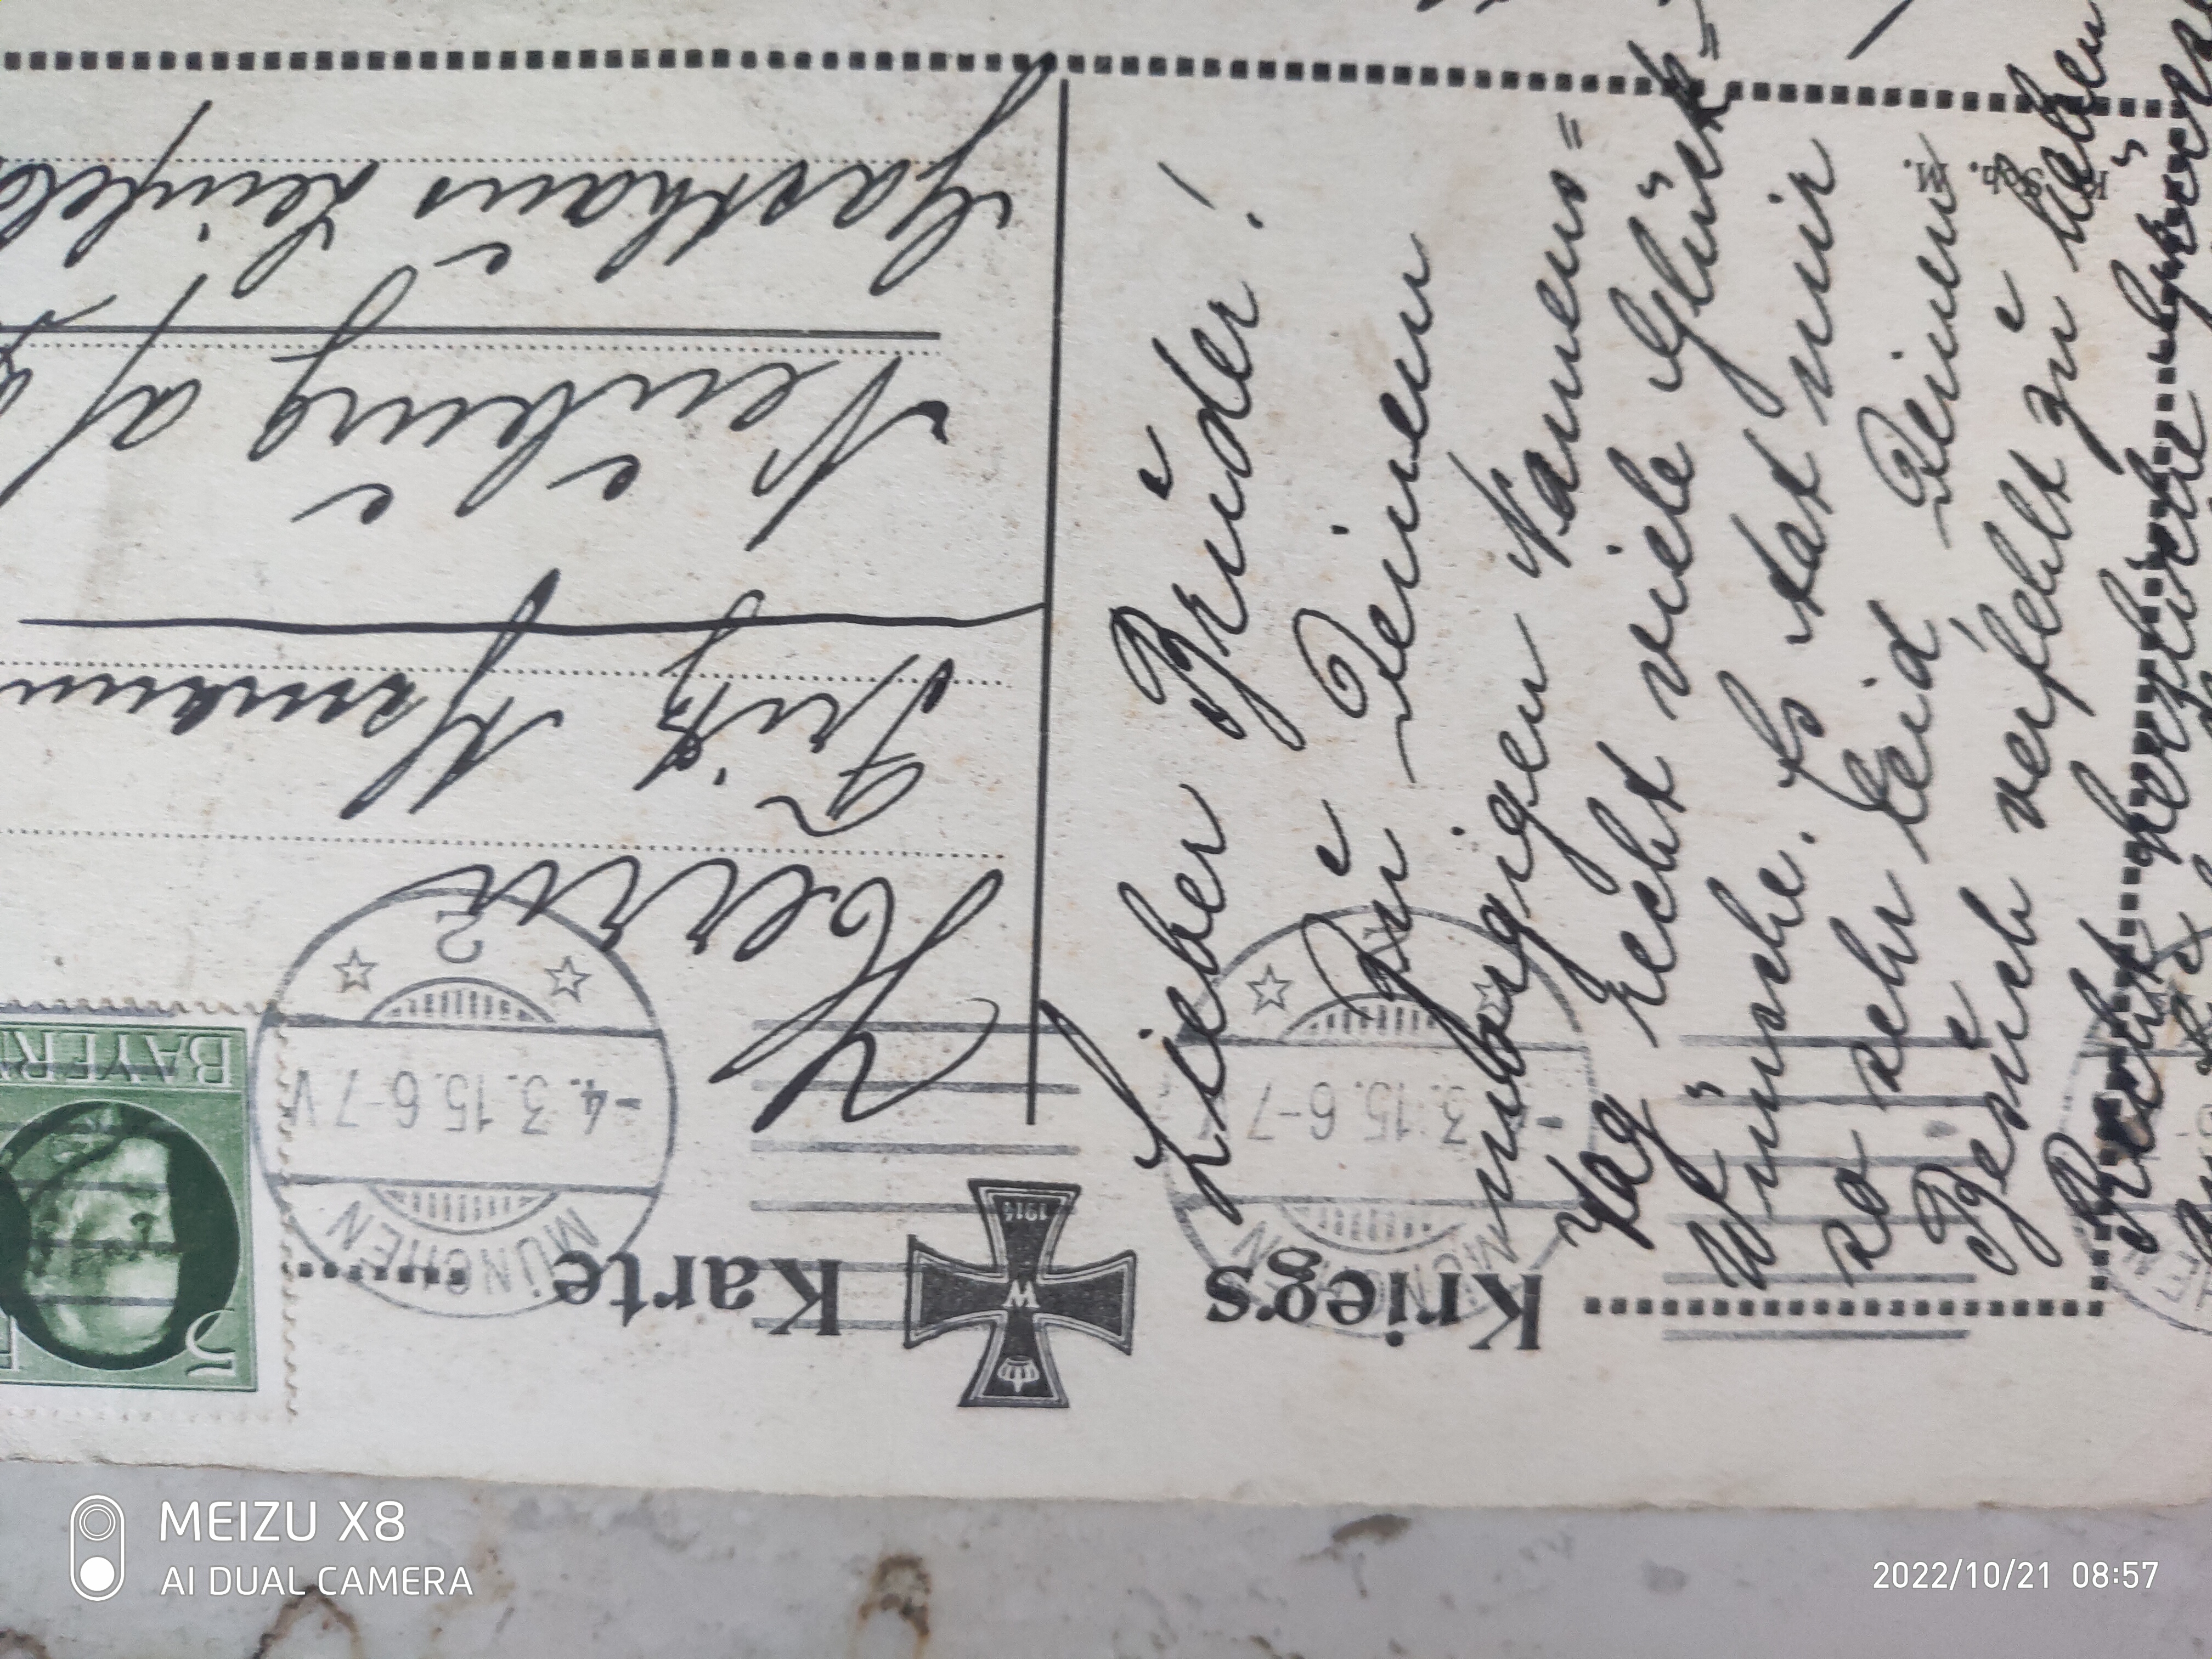 Kriegs Karte
1914
W
BAYERN
5
MÜNCHEN
-4.3.15.6-7 V.
2
MÜNCHEN
3.15.6-7
Lieber Bruder!
Zu Deinem
morgigen Namens=
tag recht viele Glück=
Wünsche. Es tat mir
so sehr leid Deinen
Besuch verfehlt zu haben
herzliche
Herrn
Fritz
Neuburg a/
Gasthaus
MEIZU X8
AI DUAL CAMERA
2022/10/21 08:57